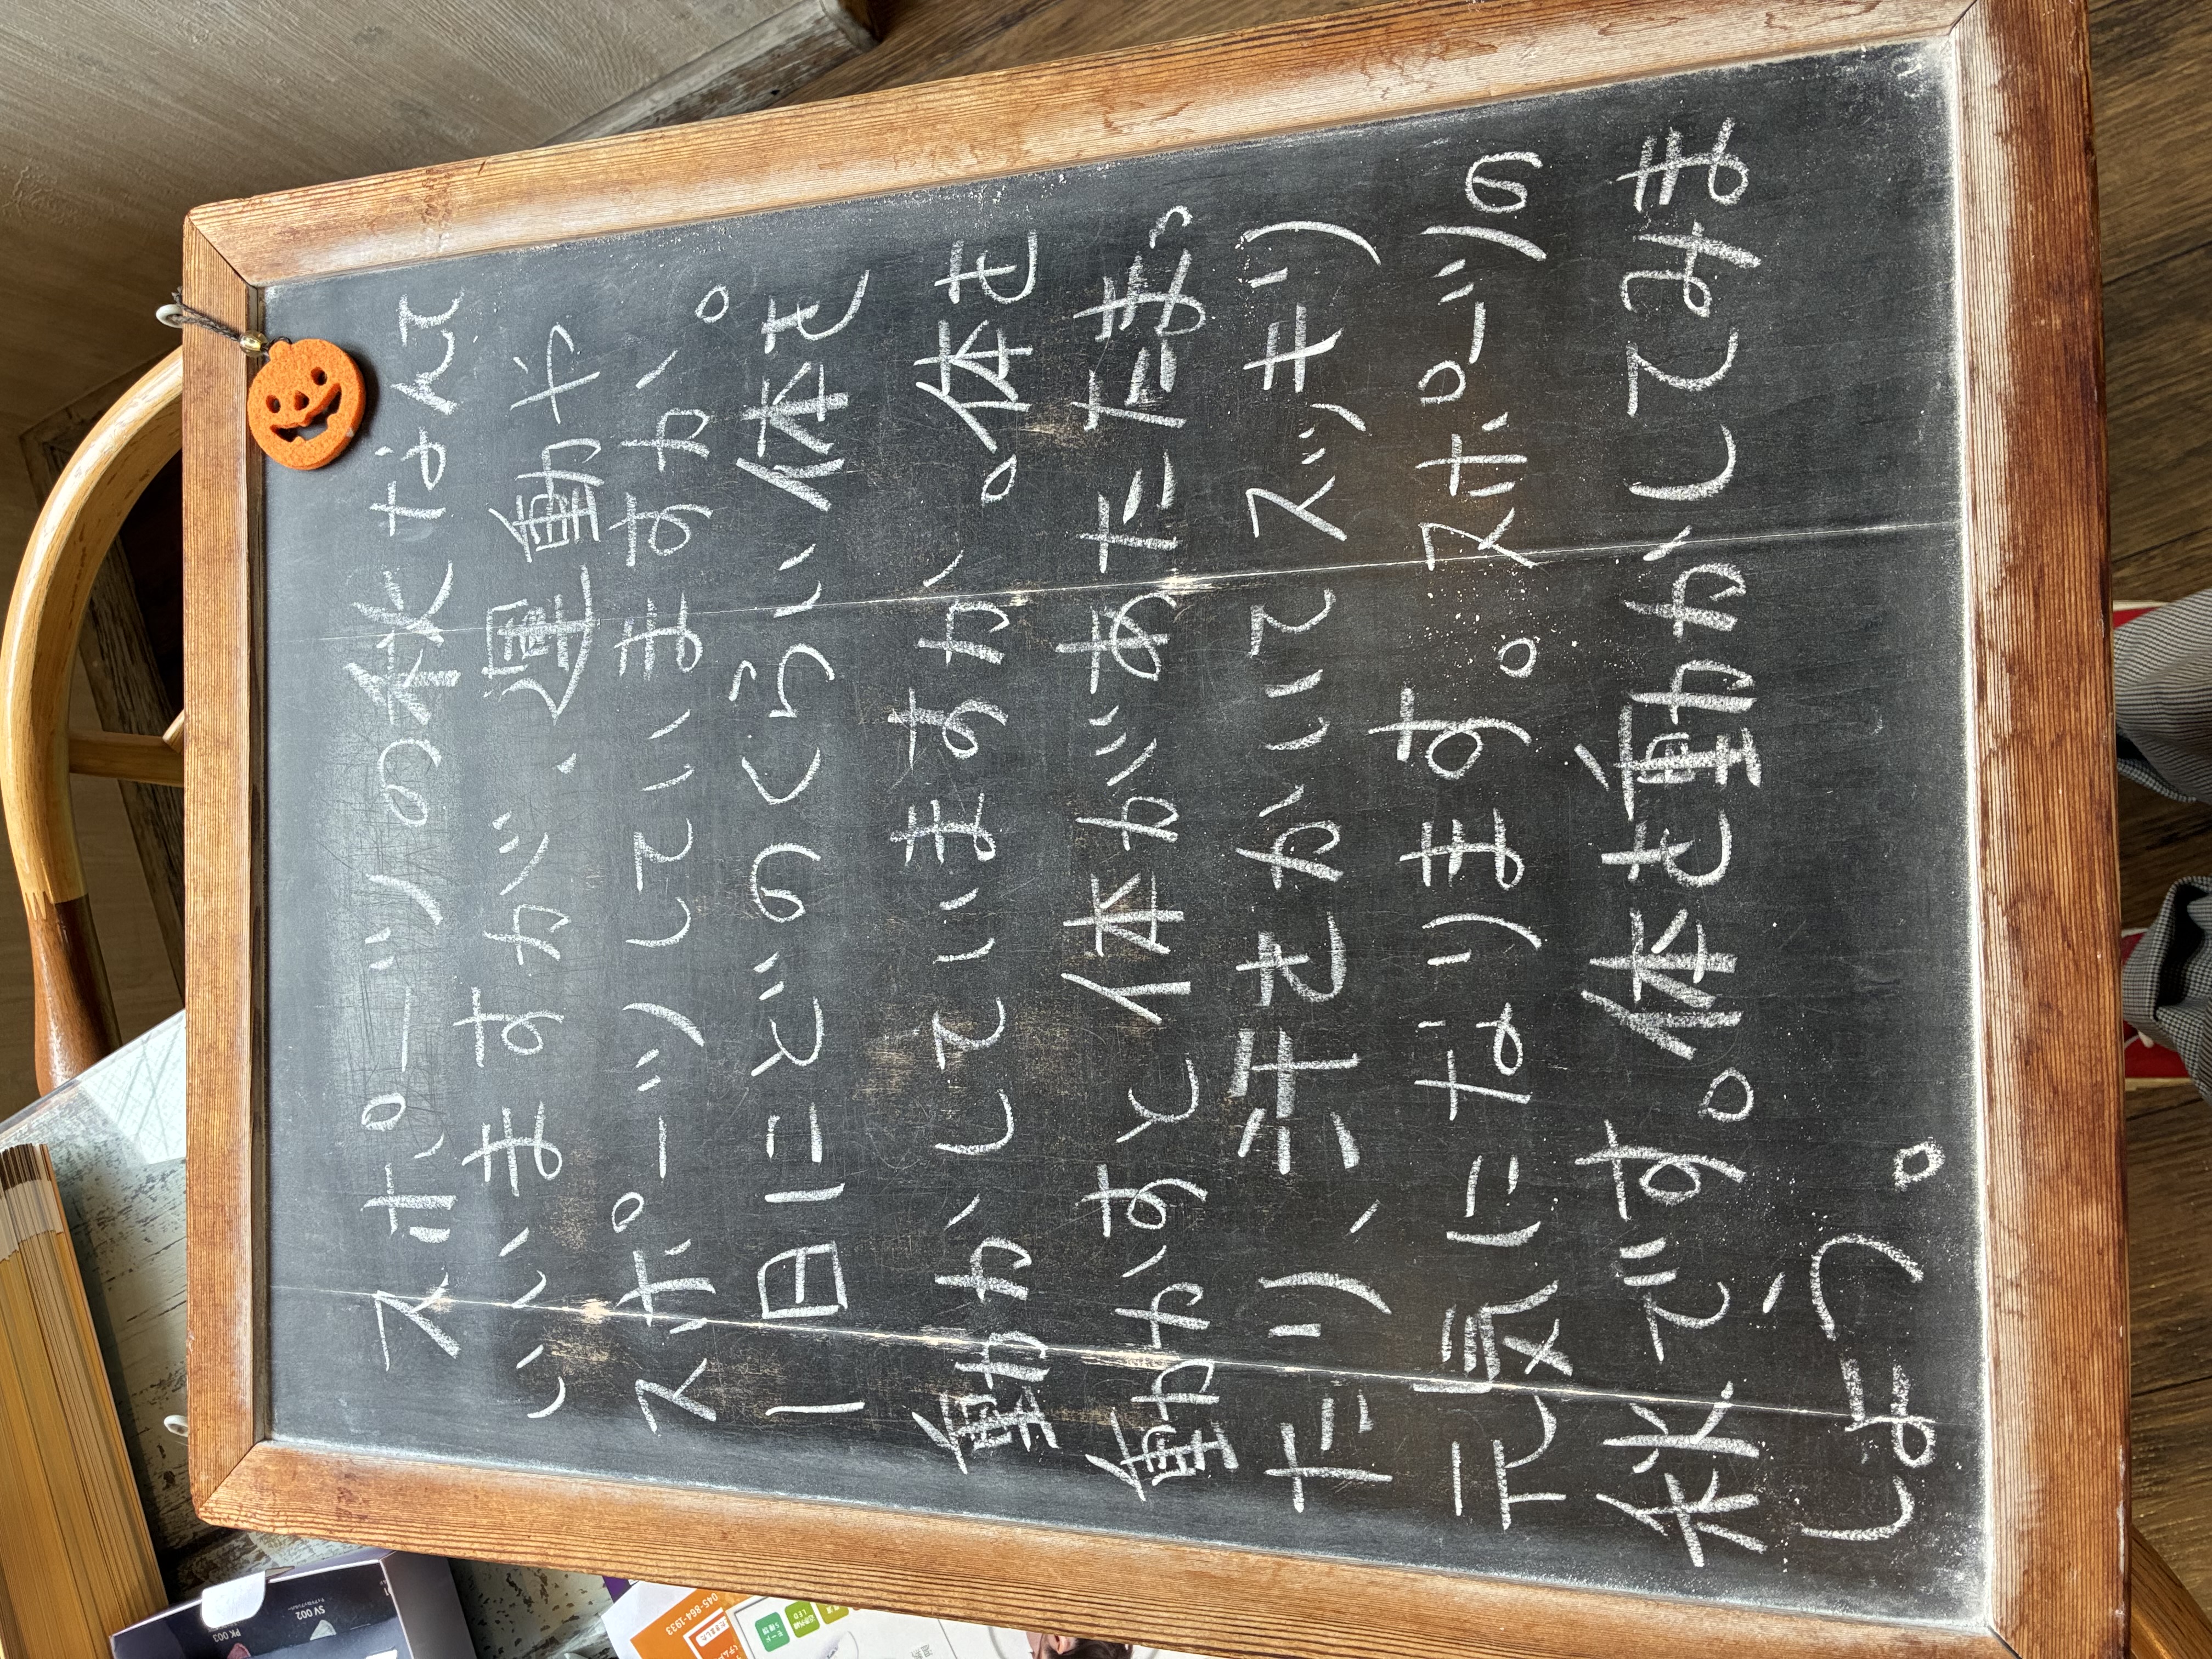 スポーツの秋なんて
いいますが、運動や
スポーツしていますか。
一日にどのくらい体を
動かしていますか。体を
動かすと体があたたまっ
たり、汗をかいてスッキリ
元気になります。スポーツの
秋です。体を動かしてみま
しょう。
SV 002
PK 003
045-864-1933